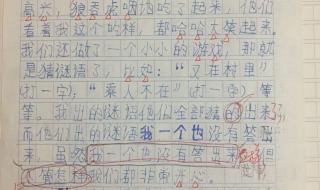 高兴，狼吞虎咽地吃了起来，他们
看着我这个吃样，都哈哈大笑起来。
我们还做了一个小小的游戏，那就
是猜谜语了，比如：“又在村里”
(打一字)；“乘人不在”(打一字)，等
等。我出的谜语他们全部猜的出来了，
而他们出的谜语我一个也没有答出
来，虽然我一个也没有答出来，但
不管怎样我们都非常开心。